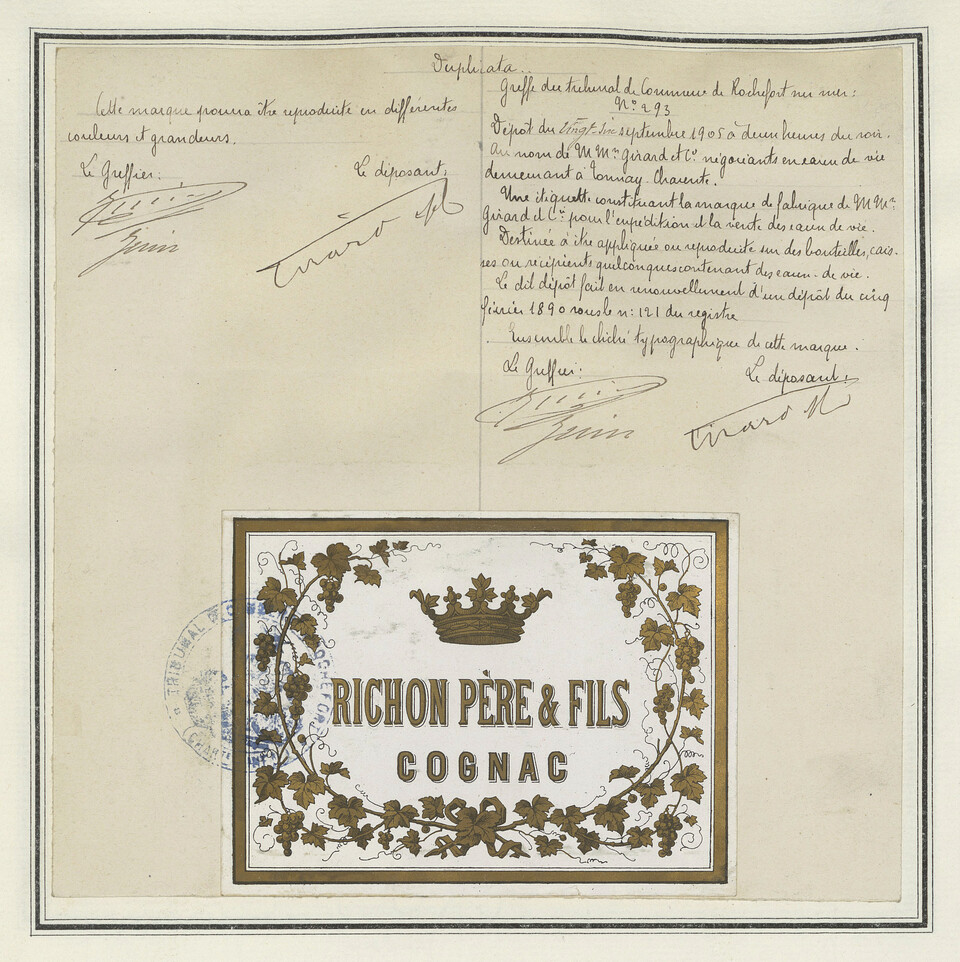 Duplicata.
Cette marque pourra être reproduite en différentes
couleurs et grandeurs.
Le Greffier:
Le déposant,
Girard
Greffe du tribunal de Commerce de Rochefort sur mer:
N° 293
Dépôt du vingt-six septembre 1905 à deux heures du soir.
Au nom de MMrs Girard et Co négociants en eaux de vie
demeurant à Tonnay-Charente.
Une étiquette constituant la marque de fabrique de MMrs
Girard et Cie pour l'expédition et la vente des eaux de vie.
Destinée à être appliquée ou reproduite sur des bouteilles, cais-
ses ou récipients quelconques contenant des eaux-de vie.
Le dit dépôt fait en renouvellement d'un dépôt du cinq
février 1890 sous le n: 121 du registre
Ensemble le cliché typographique de cette marque.
Le Greffier:
Le déposant:
Girard
TRIBUNAL
ROCHEFORT
RICHON PÈRE & FILS
COGNAC